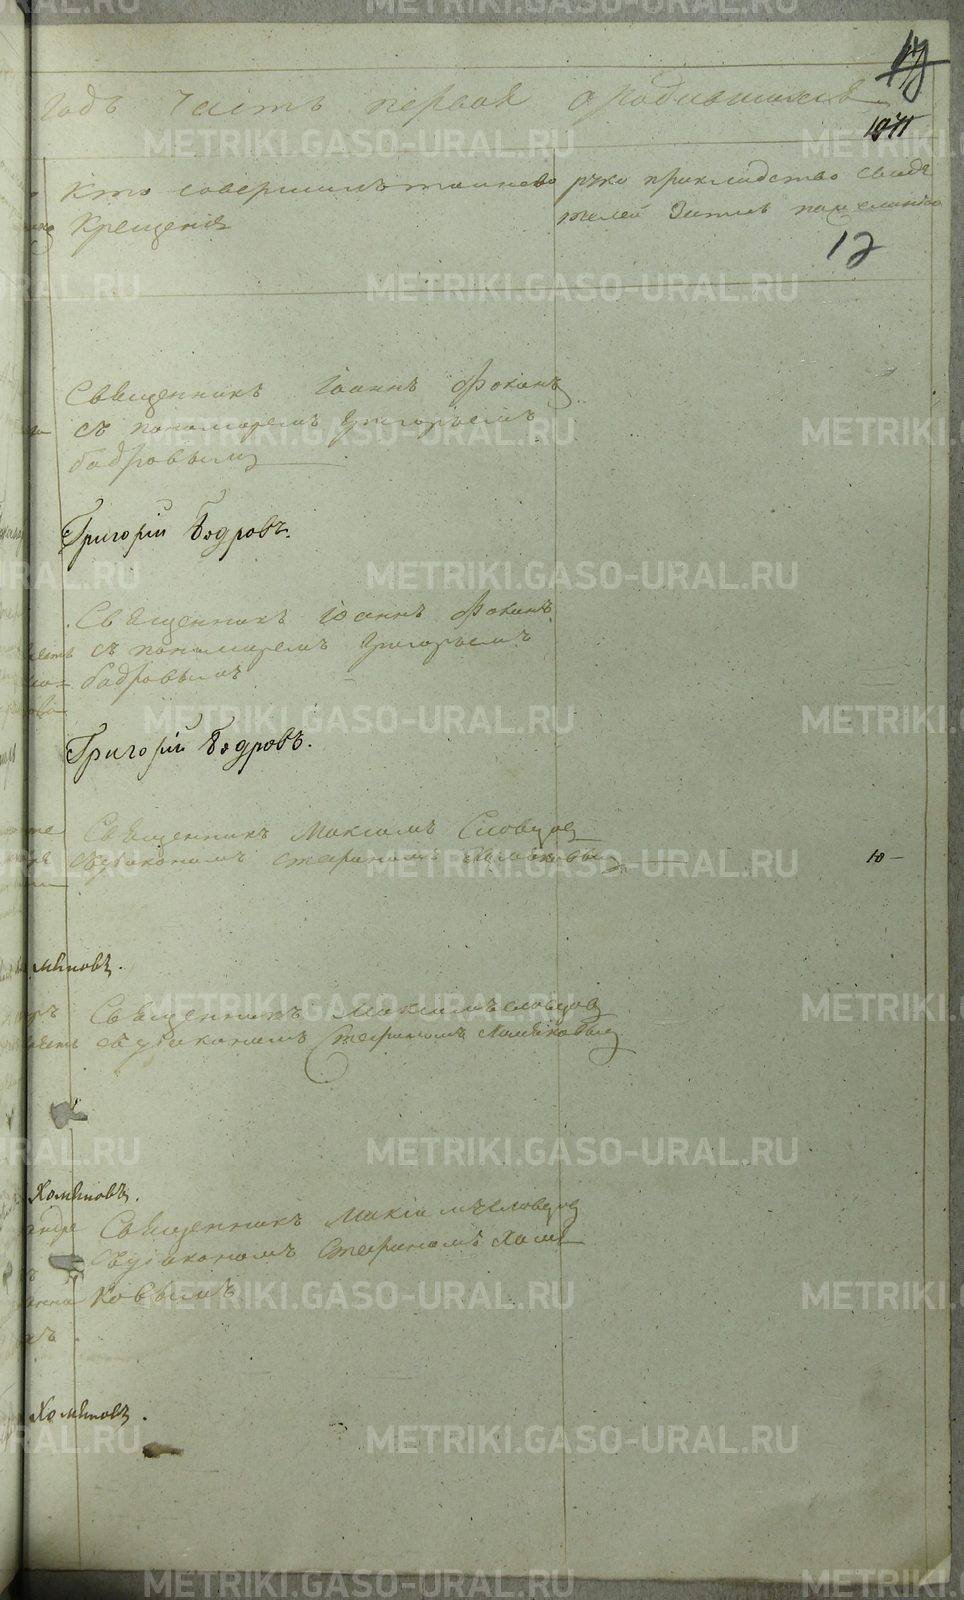 годъ часть первая о родившихся
кто совершилъ таинево
крещения
рукоприкладство свиде
телей записи по желанию
12
Священникъ Іоаннъ Фокинъ
съ пономаремъ Григорьемъ
бодровымъ
Григорій Бодровъ.
Священникъ Іоаннъ Фокинъ
съ пономаремъ Григорьемъ
бодровымъ
Григорій Бодровъ.
Священникъ Максимъ Словцов
съ діакономъ Стефаномъ Хомяковым
10
Священникъ Максимъ словцов
съ діакономъ Стефаномъ Хомяковым
Хомяковъ.
Священникъ Максимъ словцов
съ діакономъ Стефаномъ Хомя
ковымъ
Хомяковъ.
METRIKI.GASO-URAL.RU